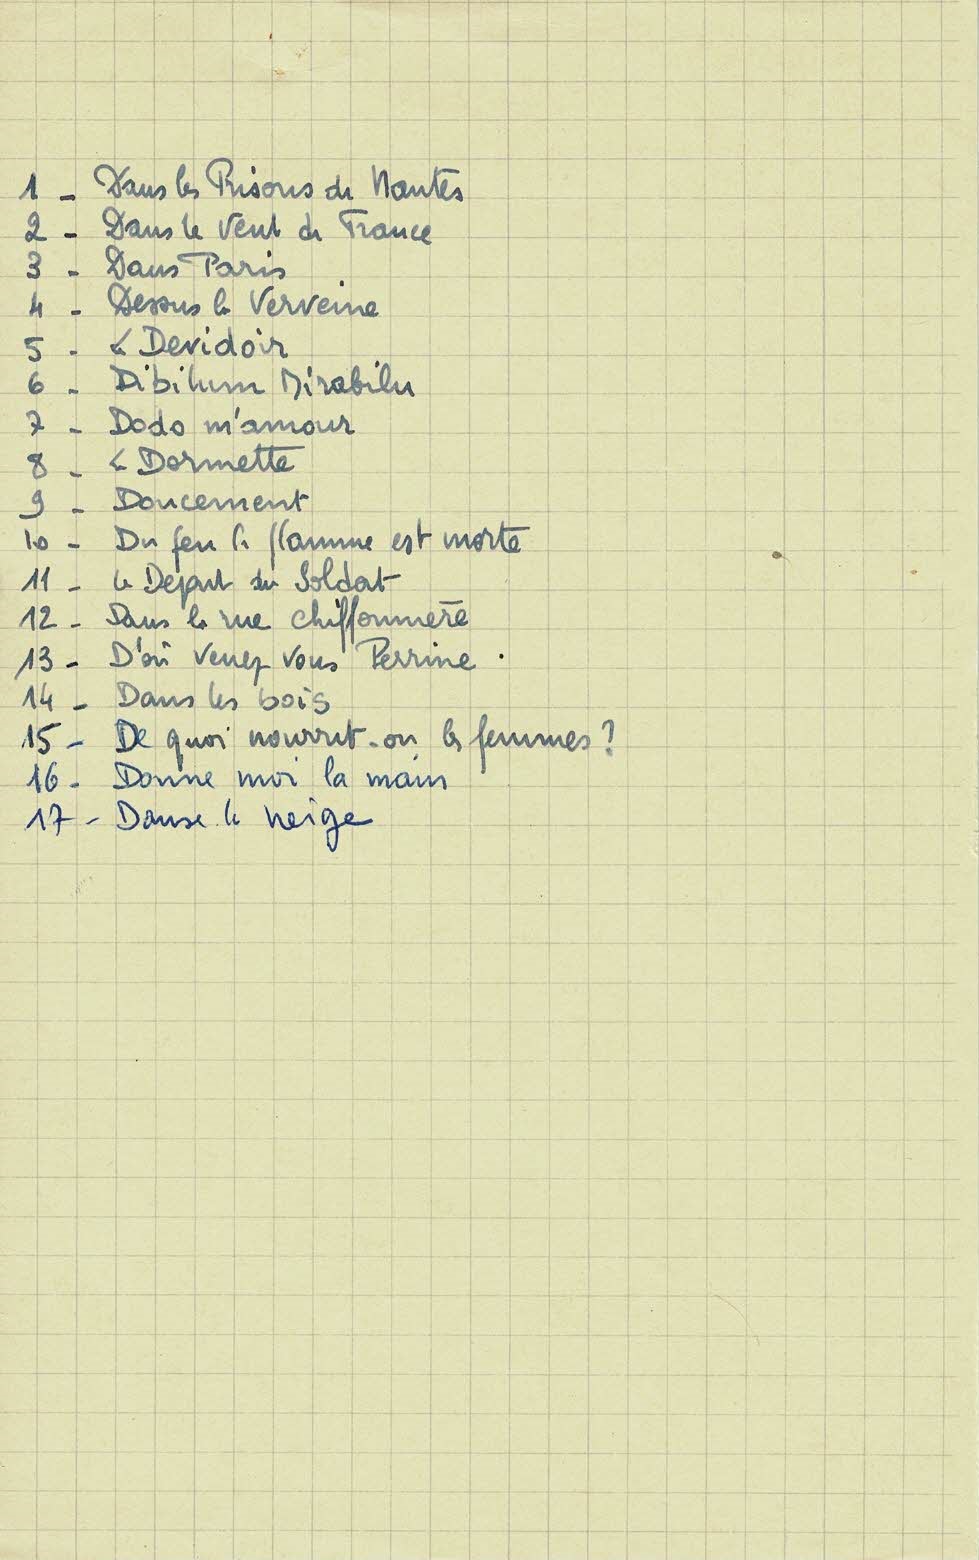 1 - Dans les Prisons de Nantes
2 - Dans le Vent de France
3 - Dans Paris
4 - Dessus la Verveine
5 - Le Devidoir
6 - Dibilum Mirabilu
7 - Dodo m'amour
8 - La Dormette
9 - Doucement
10 - Du feu la flamme est morte
11 - Le Depart du Soldat
12 - Dans la rue chiffonnière
13 - D'où venez vous Perrine .
14 - Dans les bois
15 - De quoi nourrit-on les femmes ?
16 - Donne moi la main
17 - Danse la neige